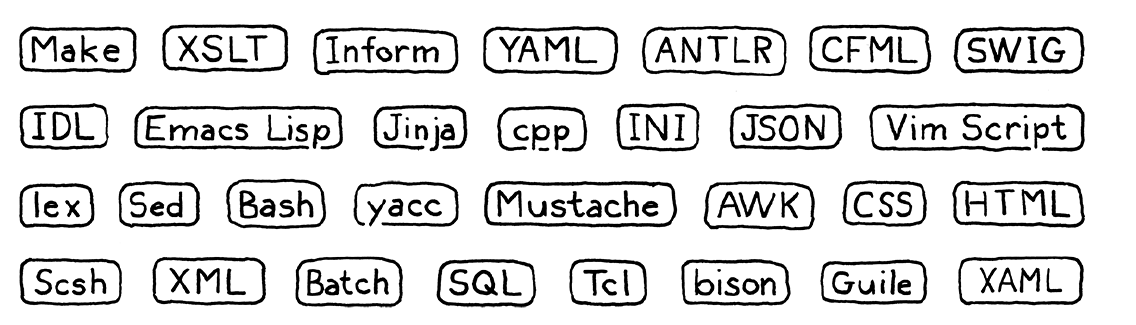 Make XSLT Inform YAML ANTLR CFML SWIG
IDL Emacs Lisp Jinja cpp INI JSON Vim Script
lex Sed Bash yacc Mustache AWK CSS HTML
Scsh XML Batch SQL Tcl bison Guile XAML